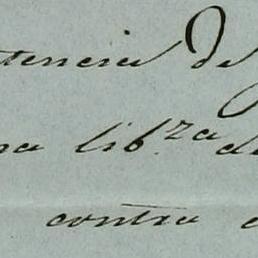 tencia de
na lib.za de
contra